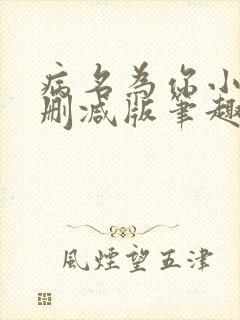 病名為你小
删减版筆趣
風煙望五津